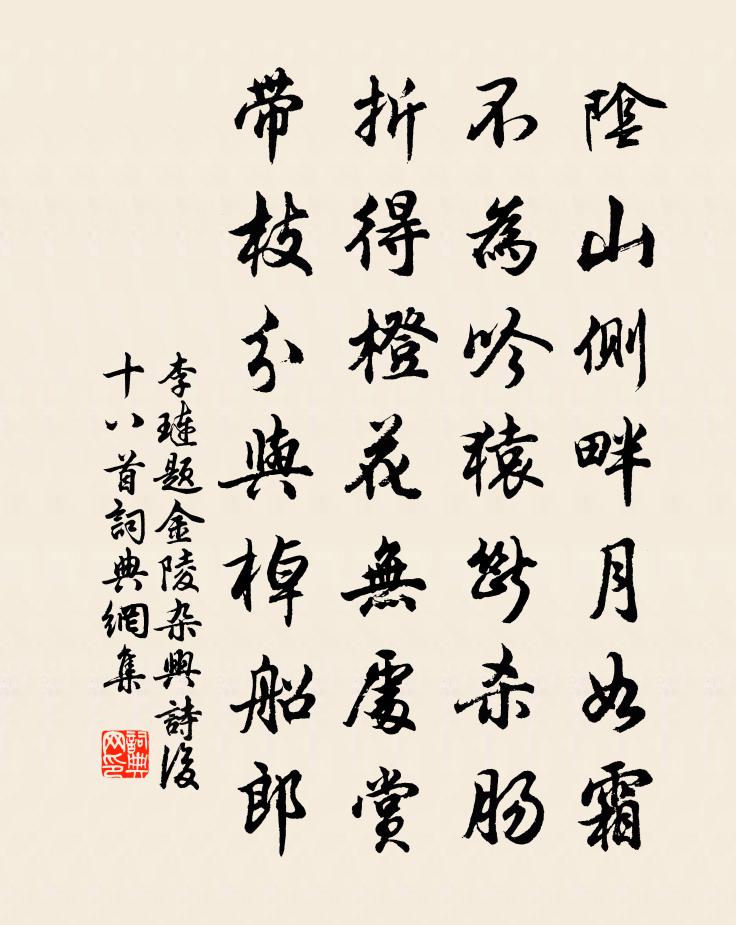 陰山側畔月如霜
不為吟猿斷殺腸
折得橙花無處賞
帶枝分與棹船郎
李璉題金陵杂興詩後
十八首詞典網集
詞典网印